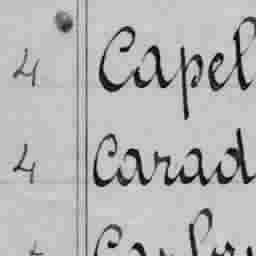 4 Capel
4 Carad